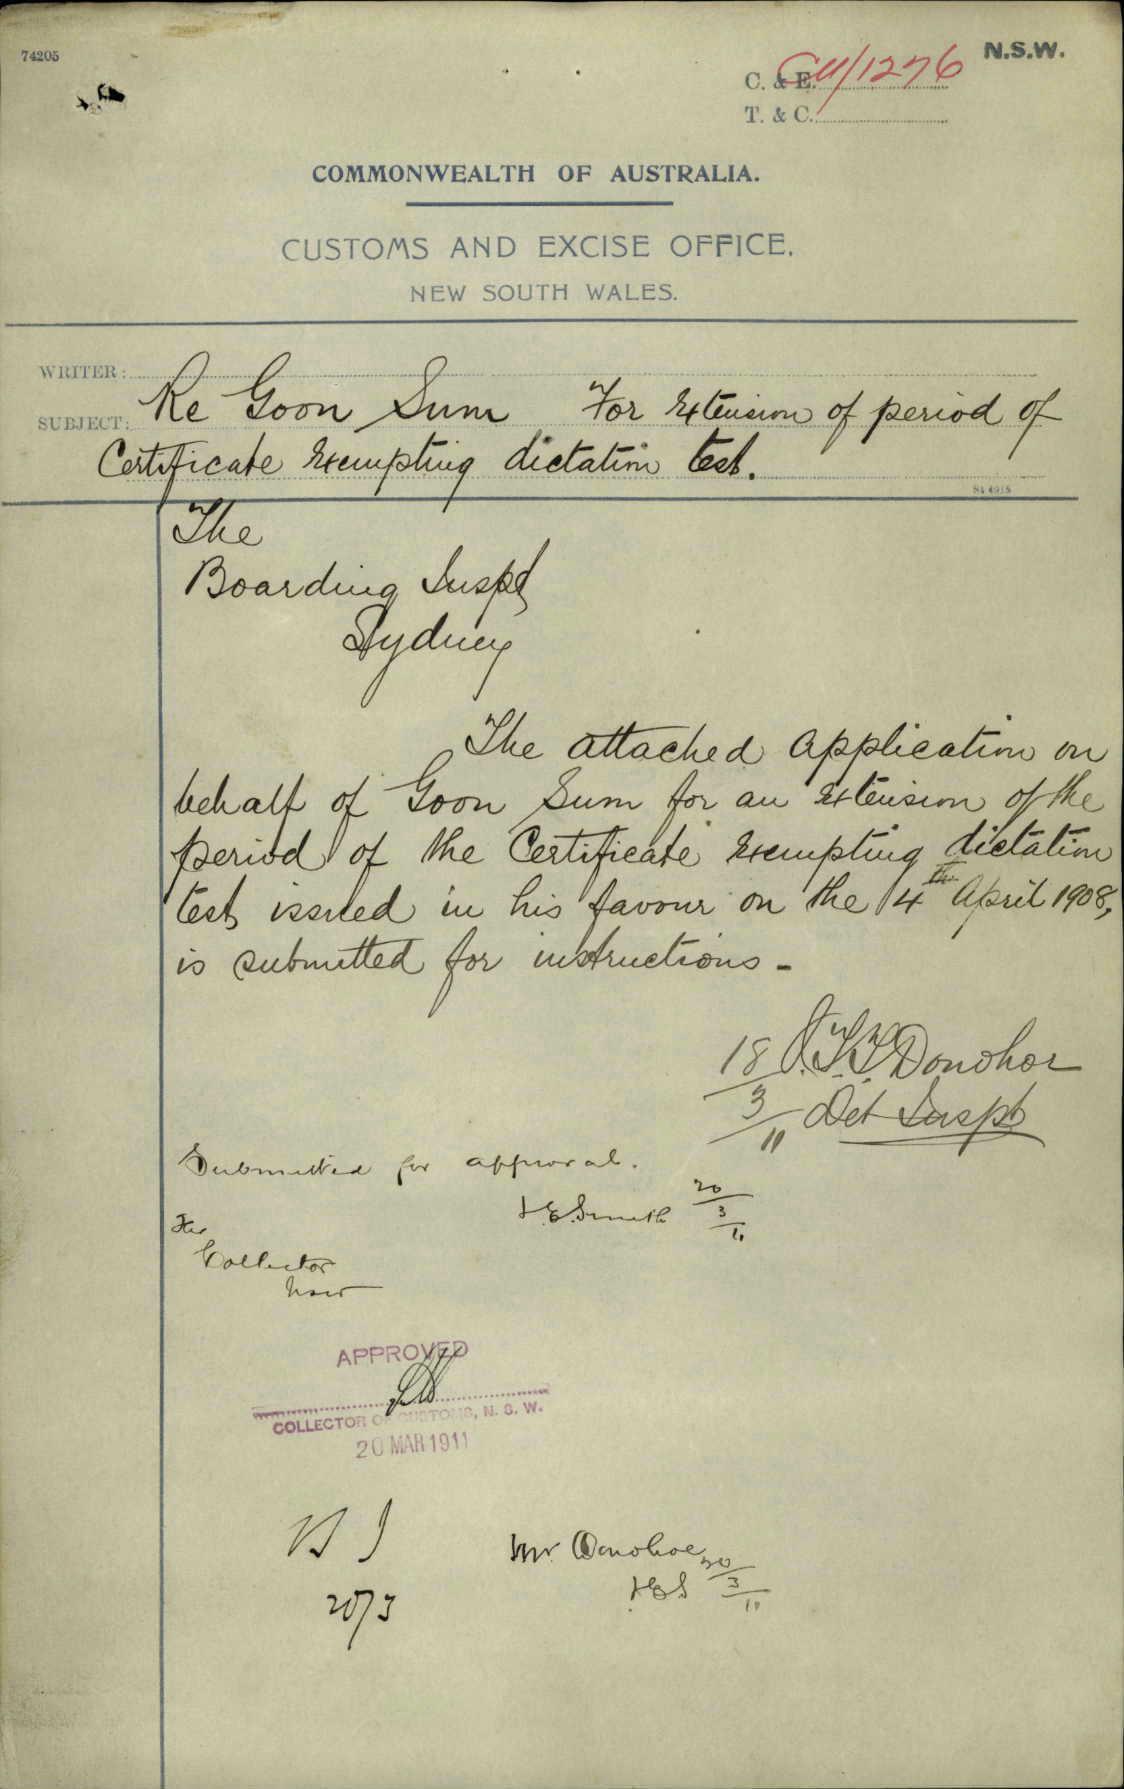 74205
N.S.W.
C. & E. C11/1276
T. & C.
COMMONWEALTH OF AUSTRALIA.
CUSTOMS AND EXCISE OFFICE.
NEW SOUTH WALES.
WRITER:
SUBJECT: Re Goon Sum For Extension of period of
Certificate Exempting dictation test.
The
Boarding Inspr
Sydney
The attached application on
behalf of Goon Sum for an Extension of the
period of the Certificate Exempting dictation
test issued in his favour on the 4th April 1908,
is submitted for instructions -
18/3/11 Donohoe
Det Inspr
Submitted for approval.
Smith 20/3/11
The
Collector
NSW
APPROVED
COLLECTOR OF CUSTOMS, N. S. W.
20 MAR 1911
B I
20/3
Mr. Donohoe
20/3/11